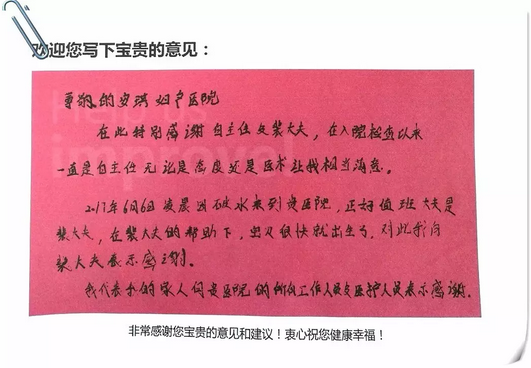 欢迎您写下宝贵的意见：
尊敬的安琪妇产医院
在此特别感谢自主任及裴大夫，在入院检查以来
一直是自主任无论是态度还是医术让我相当满意。
2017年6月6日凌晨因破水来到贵医院，正好值班大夫是
裴大夫，在裴大夫的帮助下，宝贝很快就出生了，对此我向
裴大夫表示感谢。
我代表我的家人向贵医院的所有工作人员及医护人员表示感谢。
非常感谢您宝贵的意见和建议！衷心祝您健康幸福！